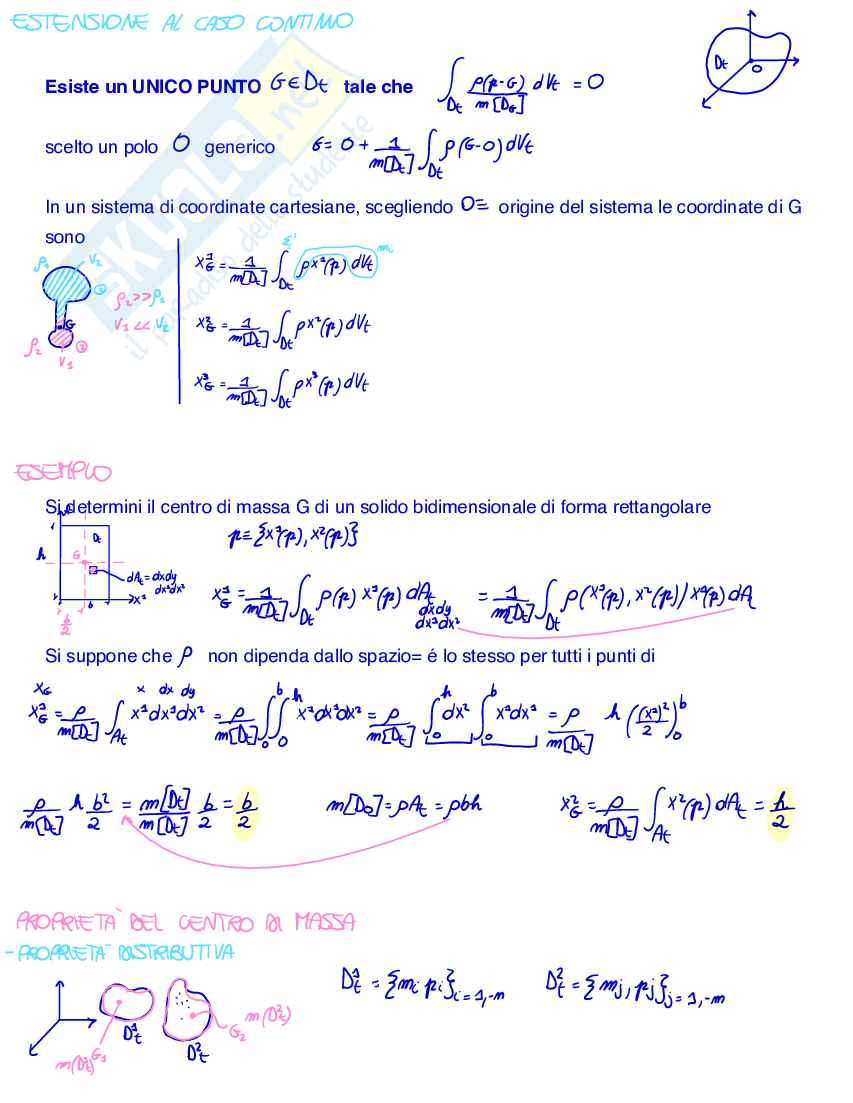 ESTENSIONE AL CASO CONTINUO
Esiste un UNICO PUNTO G ∈ Dt tale che ∫_Dt ρ(p-G)/m[DG] dVt = 0
Dt O
scelto un polo O generico G = O + 1/m[Dt] ∫_Dt ρ(G-O) dVt
In un sistema di coordinate cartesiane, scegliendo O≡ origine del sistema le coordinate di G
sono
x¹_G = 1/m[Dt] ∫_Dt ρ x¹(p) dVt m
x²_G = 1/m[Dt] ∫_Dt ρ x²(p) dVt
x³_G = 1/m[Dt] ∫_Dt ρ x³(p) dVt
V2
ρ2 >> ρ1
V1 << V2
G
ρ2
V1
ESEMPIO
Si determini il centro di massa G di un solido bidimensionale di forma rettangolare
p ≡ {x¹(p), x²(p)}
h G Dt
dAt = dxdy
dx¹dx²
b x¹
b/2
x¹_G = 1/m[Dt] ∫_Dt ρ(p) x¹(p) dAt = 1/m[Dt] ∫_Dt ρ(x¹(p), x²(p)) x¹(p) dA
dxdy
dx¹dx²
Si suppone che ρ non dipenda dallo spazio= é lo stesso per tutti i punti di
xG x dx dy
x¹_G = ρ/m[Dt] ∫_At x¹dx¹dx² = ρ/m[Dt] ∫_0^b ∫_0^h x¹dx¹dx² = ρ/m[Dt] ∫_0^h dx² ∫_0^b x¹dx¹ = ρ/m[Dt] h ((x¹)²/2)_0^b
ρ/m[Dt] h b²/2 = m[Dt]/m[Dt] b/2 = b/2 m[D0] = ρAt = ρbh x²_G = ρ/m[Dt] ∫_At x²(p) dAt = h/2
PROPRIETÀ DEL CENTRO DI MASSA
- PROPRIETÀ DISTRIBUTIVA
D¹t = {mi pi}i=1,-n D²t = {mj, pj}j=1,-m
m(D¹t) G1 D¹t D²t G2 m(D²t)
SKUOLA.net
il paradiso dello studente